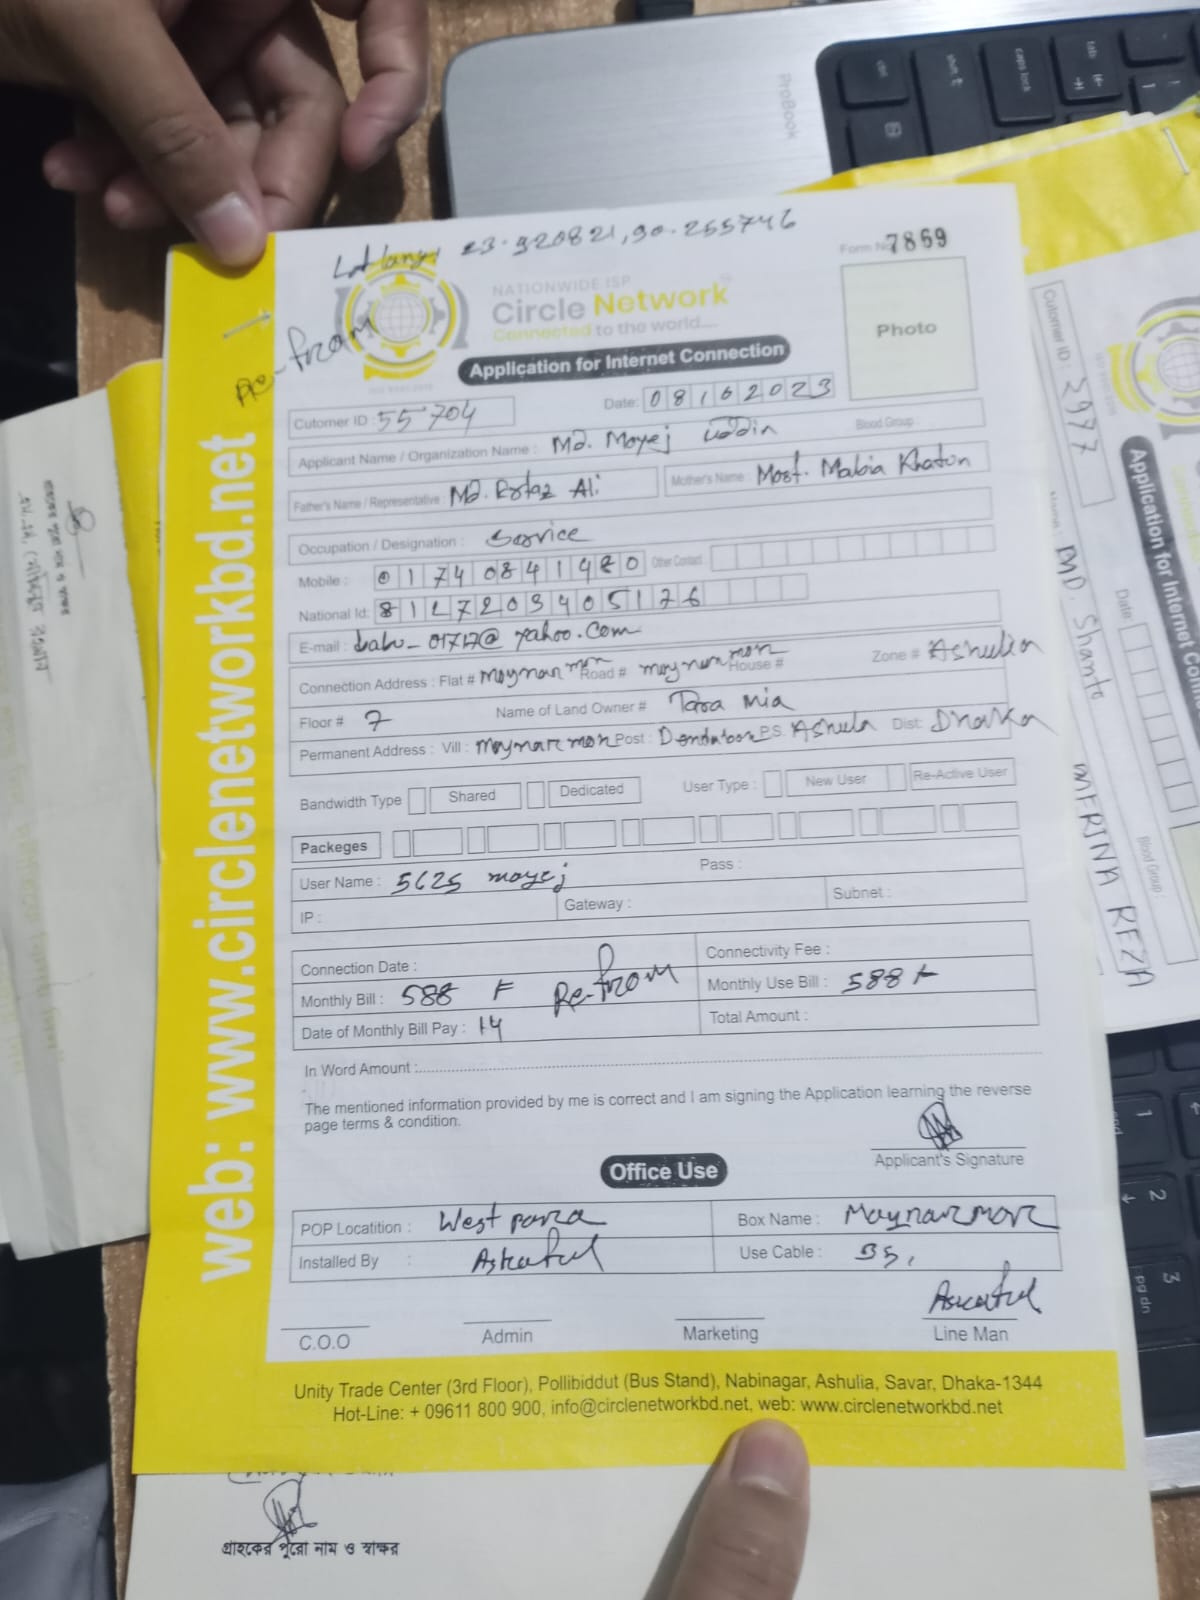 Lat lang, 23.920821, 90.255746
Form No 7869
NATIONWIDE ISP
Circle Network
Connected to the world....
Re-from
Photo
Application for Internet Connection
Date: 08102023
Cutomer ID : 55704
Applicant Name / Organization Name : Md. Moyej uddin Blood Group :
Father's Name / Representative : Md. Ali Mother's Name : Most. Mabia Khatun
Occupation / Designation : Service
Mobile : 01740841480 Other Contact
National Id:
E-mail : babu_01717@yahoo.com
Connection Address : Flat # Road # House # Zone # Ashulia
Floor # 7 Name of Land Owner # Tara mia
Permanent Address : Vill : Post : P.S. Ashula Dist: Dhaka
Bandwidth Type Shared Dedicated User Type : New User Re-Active User
Packeges
User Name : 5625 moyej Pass :
IP : Gateway : Subnet :
Connection Date : Connectivity Fee :
Monthly Bill : 588 Re-from Monthly Use Bill : 588
Date of Monthly Bill Pay : 14 Total Amount :
In Word Amount :
The mentioned information provided by me is correct and I am signing the Application learning the reverse
page terms & condition.
Applicant's Signature
Office Use
POP Locatition : West para Box Name :
Installed By : Use Cable : 35,
C.O.O Admin Marketing Line Man
Unity Trade Center (3rd Floor), Pollibiddut (Bus Stand), Nabinagar, Ashulia, Savar, Dhaka-1344
Hot-Line: + 09611 800 900, info@circlenetworkbd.net, web: www.circlenetworkbd.net
web: www.circlenetworkbd.net
গ্রাহকের পুরো নাম ও স্বাক্ষর
Cutomer ID : 2977
Application for Internet Con
Date:
MD. Shanto
Blood Group :
MERINA REZA
ProBook
ctrl
caps lock
tab
1
2
3
pg dn